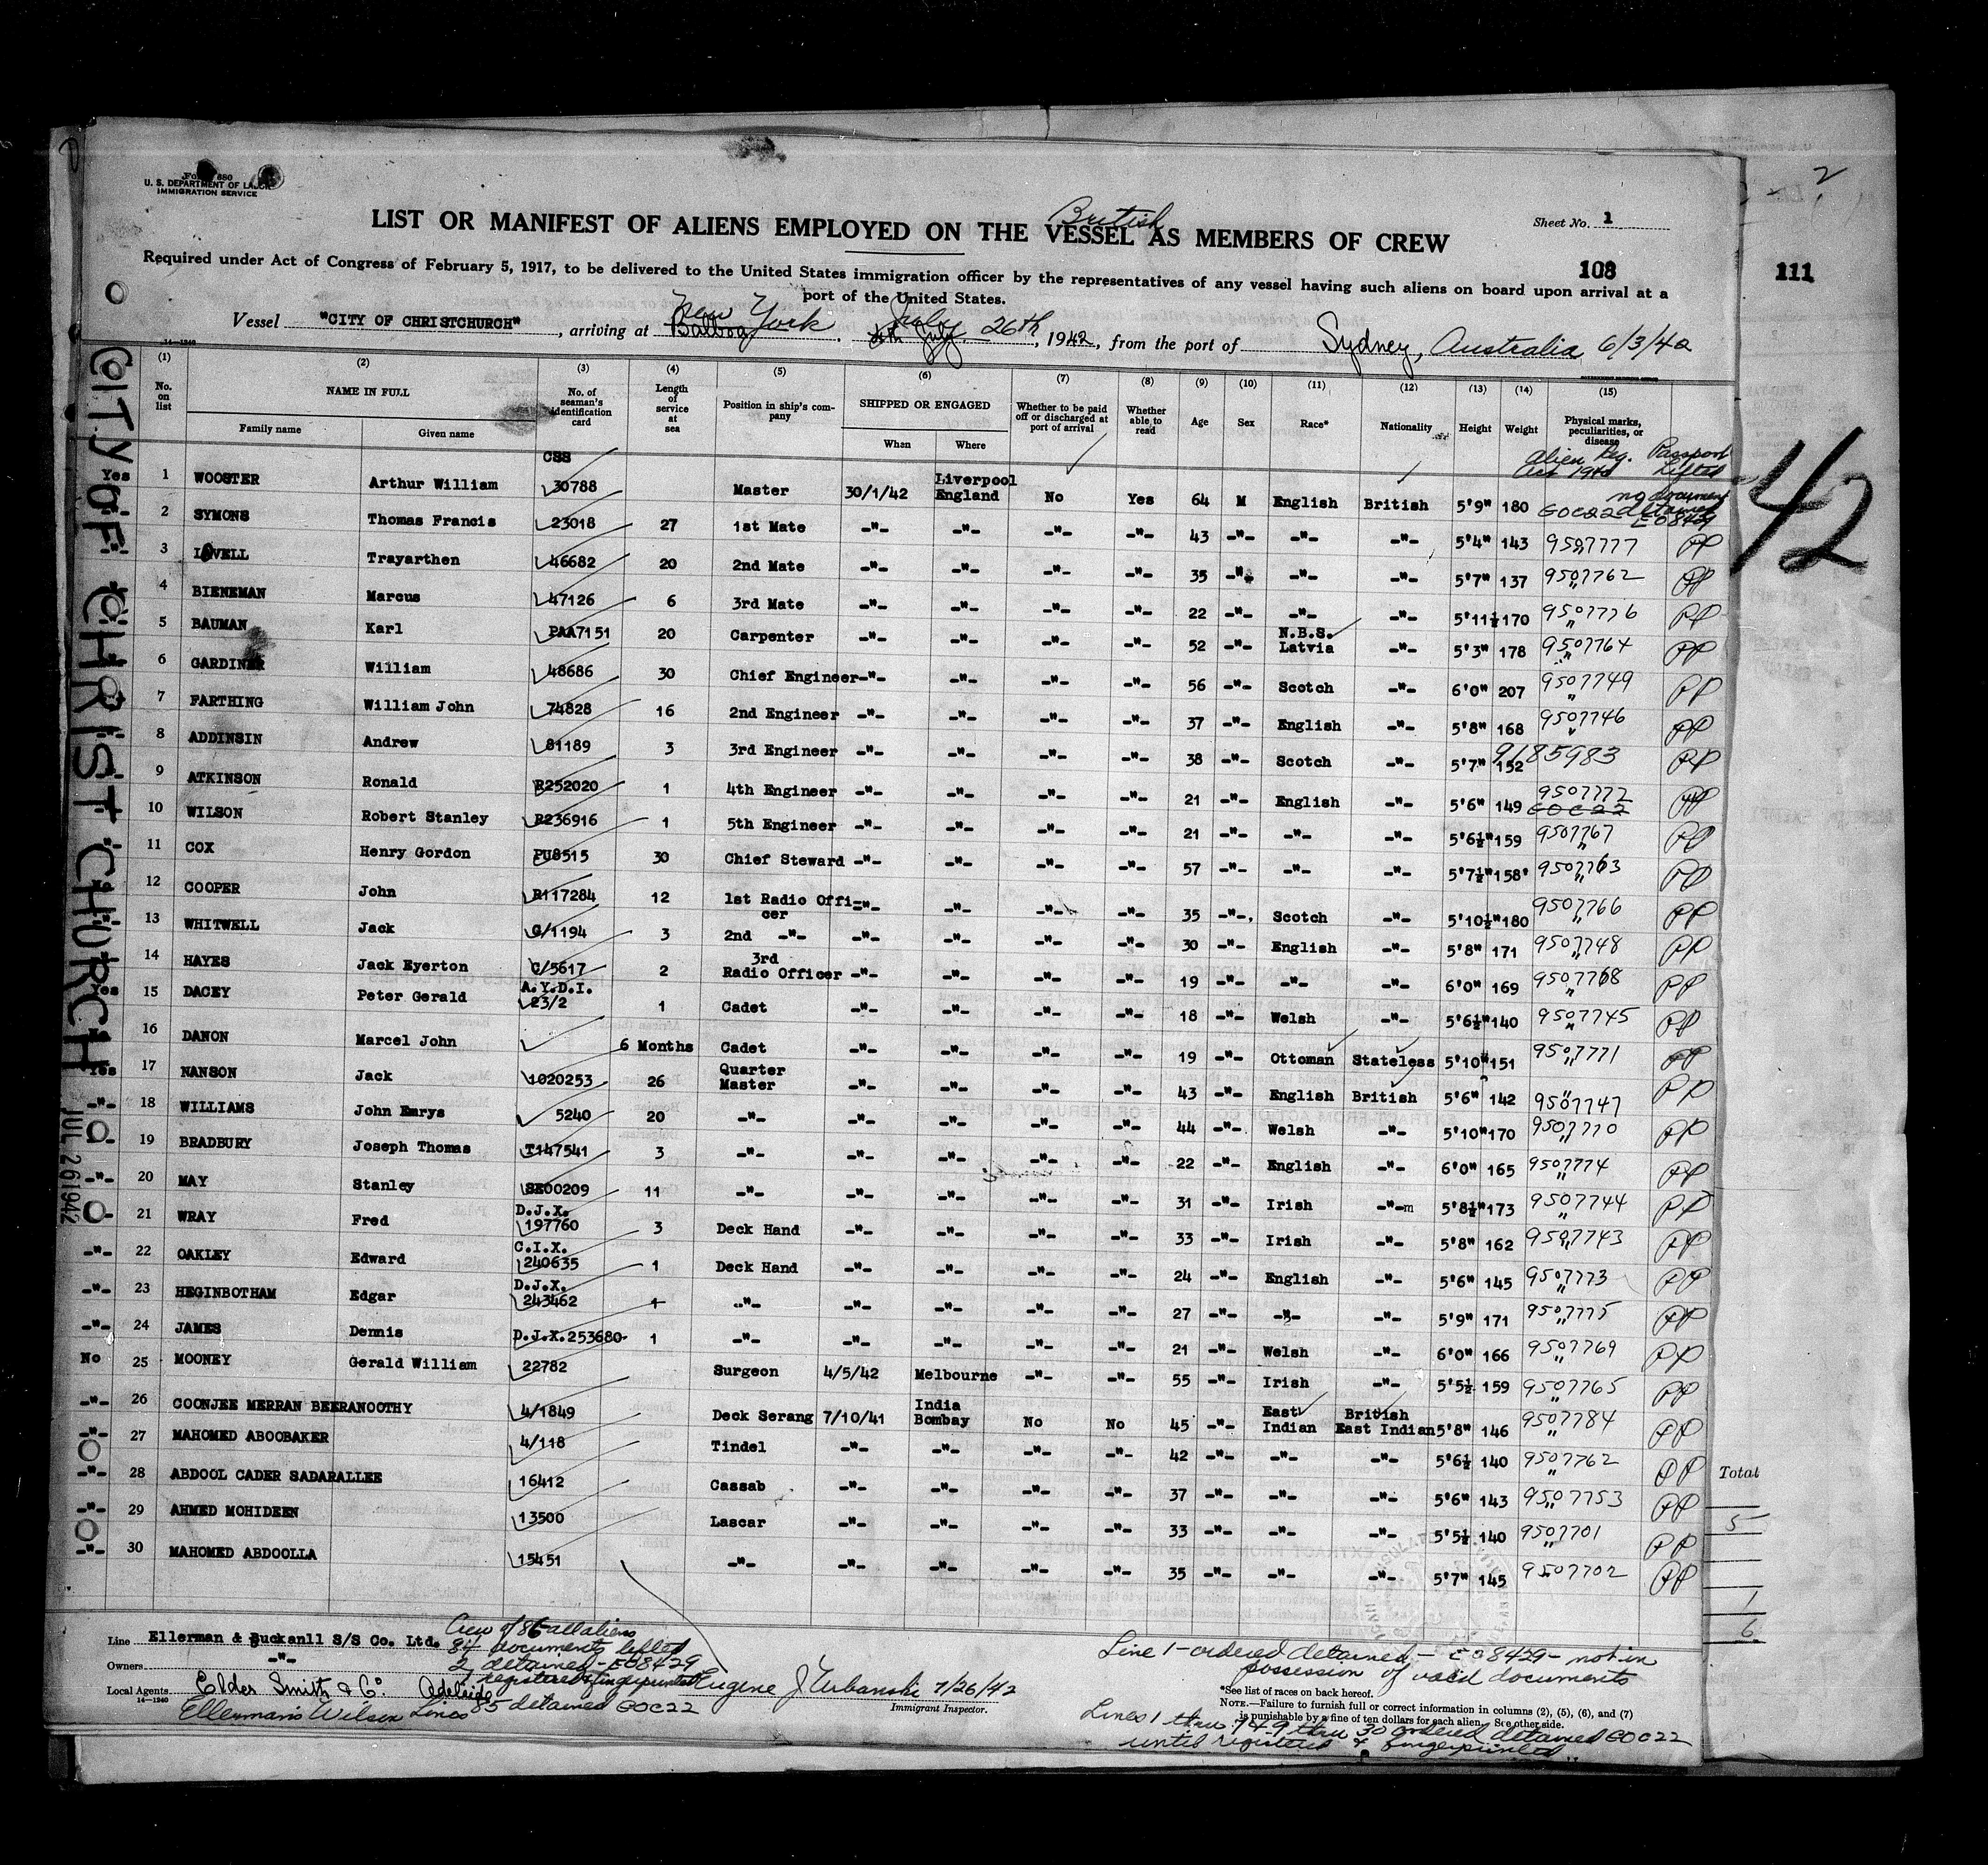 Form 680
U. S. DEPARTMENT OF LABOR
IMMIGRATION SERVICE
British
LIST OR MANIFEST OF ALIENS EMPLOYED ON THE VESSEL AS MEMBERS OF CREW
Sheet No. 1
108
111
2
Required under Act of Congress of February 5, 1917, to be delivered to the United States immigration officer by the representatives of any vessel having such aliens on board upon arrival at a
port of the United States.
New York July
Vessel "CITY OF CHRISTCHURCH", arriving at Balboa, 4th July 26th, 1942, from the port of Sydney, Australia 6/3/42
14-1240
(1) (2) (3) (4) (5) (6) (7) (8) (9) (10) (11) (12) (13) (14) (15)
No. on list NAME IN FULL Family name Given name No. of seaman's identification card Length of service at sea Position in ship's company SHIPPED OR ENGAGED When Where Whether to be paid off or discharged at port of arrival Whether able to read Age Sex Race* Nationality Height Weight Physical marks, peculiarities, or disease
Alien Reg. Passport
Act 1940 Lifted
CSS
Yes 1 WOOSTER Arthur William 30788 Master 30/1/42 Liverpool England No Yes 64 M English British 5'9" 180 GOC22 no document detained E08429
2 SYMONS Thomas Francis 23018 27 1st Mate -"- -"- -"- -"- 43 -"- -"- -"- 5'4" 143 9507777 PP
-"- 3 LOVELL Trayarthen 46682 20 2nd Mate -"- -"- -"- -"- 35 -"- -"- -"- 5'7" 137 9507762 PP
4 BIENEMAN Marcus 47126 6 3rd Mate -"- -"- -"- -"- 22 -"- -"- -"- 5'11½ 170 9507776 PP
5 BAUMAN Karl PAA7151 20 Carpenter -"- -"- -"- -"- 52 -"- N.B.S. Latvia -"- 5'3" 178 9507764 PP
6 GARDINER William 48686 30 Chief Engineer -"- -"- -"- -"- 56 -"- Scotch -"- 6'0" 207 9507749 PP
7 FARTHING William John 74828 16 2nd Engineer -"- -"- -"- -"- 37 -"- English -"- 5'8" 168 9507746 PP
8 ADDINSIN Andrew 81189 3 3rd Engineer -"- -"- -"- -"- 38 -"- Scotch -"- 5'7" 152 9185983 PP
9 ATKINSON Ronald R252020 1 4th Engineer -"- -"- -"- -"- 21 -"- English -"- 5'6" 149 9507772 GOC22 PP
10 WILSON Robert Stanley R236916 1 5th Engineer -"- -"- -"- -"- 21 -"- -"- -"- 5'6½" 159 9507767 PP
11 COX Henry Gordon PU8515 30 Chief Steward -"- -"- -"- -"- 57 -"- -"- -"- 5'7½" 158 9507763 PP
12 COOPER John R117284 12 1st Radio Officer -"- -"- -"- -"- 35 -"- Scotch -"- 5'10½" 180 9507766 PP
13 WHITWELL Jack C/1194 3 2nd -"- -"- -"- -"- -"- 30 -"- English -"- 5'8" 171 9507748 PP
14 HAYES Jack Eyerton C/5617 2 3rd Radio Officer -"- -"- -"- -"- 19 -"- -"- -"- 6'0" 169 9507768 PP
Yes 15 DACEY Peter Gerald A.Y.D.I. 23/2 1 Cadet -"- -"- -"- -"- 18 -"- Welsh -"- 5'6½" 140 9507745 PP
16 DANON Marcel John 6 Months Cadet -"- -"- -"- -"- 19 -"- Ottoman Stateless 5'10" 151 9507771 PP
Yes 17 NANSON Jack 1020253 26 Quarter Master -"- -"- -"- -"- 43 -"- English British 5'6" 142 9507747 PP
-"- 18 WILLIAMS John Emrys 5240 20 -"- -"- -"- -"- -"- 44 -"- Welsh -"- 5'10" 170 9507770 PP
-"- 19 BRADBURY Joseph Thomas T147541 3 -"- -"- -"- -"- -"- 22 -"- English -"- 6'0" 165 9507774 PP
-"- 20 MAY Stanley SE00209 11 -"- -"- -"- -"- -"- 31 -"- Irish -"- 5'8½" 173 9507744 PP
-"- 21 WRAY Fred D.J.X. 197760 3 Deck Hand -"- -"- -"- -"- 33 -"- Irish -"- 5'8" 162 9507743 PP
-"- 22 OAKLEY Edward C.I.X. 240635 1 Deck Hand -"- -"- -"- -"- 24 -"- English -"- 5'6" 145 9507773 PP
-"- 23 HEGINBOTHAM Edgar D.J.X. 243462 1 -"- -"- -"- -"- -"- 27 -"- -"- -"- 5'9" 171 9507775 PP
-"- 24 JAMES Dennis D.J.X.253680 1 -"- -"- -"- -"- -"- 21 -"- Welsh -"- 6'0" 166 9507769 PP
No 25 MOONEY Gerald William 22782 Surgeon 4/5/42 Melbourne -"- -"- 55 -"- Irish -"- 5'5½ 159 9507765 PP
-"- 26 COONJEE MERRAN BEERANOOTHY 4/1849 Deck Serang 7/10/41 India Bombay No No 45 -"- East Indian British East Indian 5'8" 146 9507784 PP
-"- 27 MAHOMED ABOOBAKER 4/118 Tindel -"- -"- -"- -"- 42 -"- -"- -"- 5'6½ 140 9507762 PP
-"- 28 ABDOOL CADER SADARALLEE 16412 Cassab -"- -"- -"- -"- 37 -"- -"- -"- 5'6" 143 9507753 PP
-"- 29 AHMED MOHIDEEN 13500 Lascar -"- -"- -"- -"- 33 -"- -"- -"- 5'5½ 140 9507701 PP
-"- 30 MAHOMED ABDOOLLA 15451 -"- -"- -"- -"- -"- 35 -"- -"- -"- 5'7" 145 9507702 PP
CITY OF CHRISTCHURCH
JUL 26 1942
42
Total
5
1
6
Line Ellerman & Buckanll S/S Co. Ltd.
Owners -"-
Local Agents Elder Smith & Co. Adelaide
14-1240
Ellerman's Wilson Lines
Crew of 86 all aliens
84 documents lifted
2 detained - E08429
registered & fingerprinted
85 detained GOC22
Eugene J Urbanski 7/26/42
Immigrant Inspector.
Line 1 - ordered detained - E08429 - not in
possession of valid documents
*See list of races on back hereof.
NOTE.—Failure to furnish full or correct information in columns (2), (5), (6), and (7)
is punishable by a fine of ten dollars for each alien. See other side.
Lines 1 thru 7 & 9 thru 30 ordered detained GOC22
until registered & fingerprinted